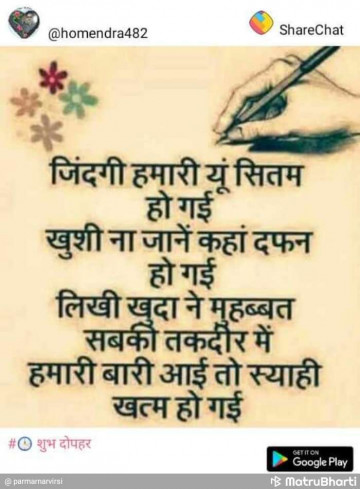 @homendra482
ShareChat
जिंदगी हमारी यूं सितम
हो गई
खुशी ना जानें कहां दफन
हो गई
लिखी खुदा ने मुहब्बत
सबकी तकदीर में
हमारी बारी आई तो स्याही
खत्म हो गई
#🕛 शुभ दोपहर
GET IT ON
Google Play
@ parmarnarvirsi
MatruBharti